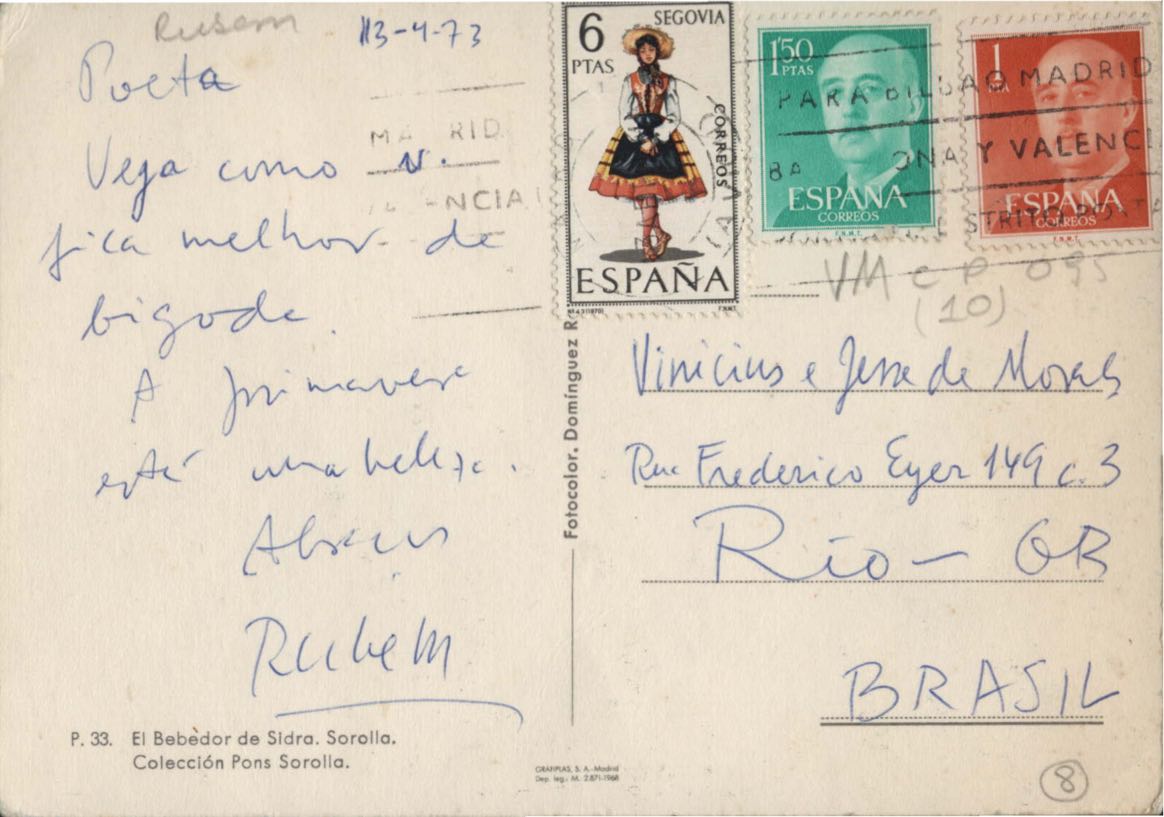 Rubem
13-4-73
Poeta
Veja como v.
fica melhor de
bigode.
A primavera
está uma beleza.
Abraços
Rubem
P. 33. El Bebedor de Sidra. Sorolla.
Colección Pons Sorolla.
Fotocolor. Domínguez R
GRAFIPLAS, S. A.-Madrid
Dep. leg.: M. 2.871-1968
6
PTAS
SEGOVIA
CORREOS
ESPAÑA
F.N.M.T.
1'50
PTAS
ESPAÑA
CORREOS
F.N.M.T.
1
PTA
ESPAÑA
CORREOS
F.N.M.T.
MA RID
ENCIA
PARA BILBAO MADRID
BA ONA Y VALENCI
STRITO POSTA
VM c P 095
(10)
Vinicius e Jesse de Moraes
Rua Frederico Eyer 149 c. 3
Rio - GB
BRASIL
8